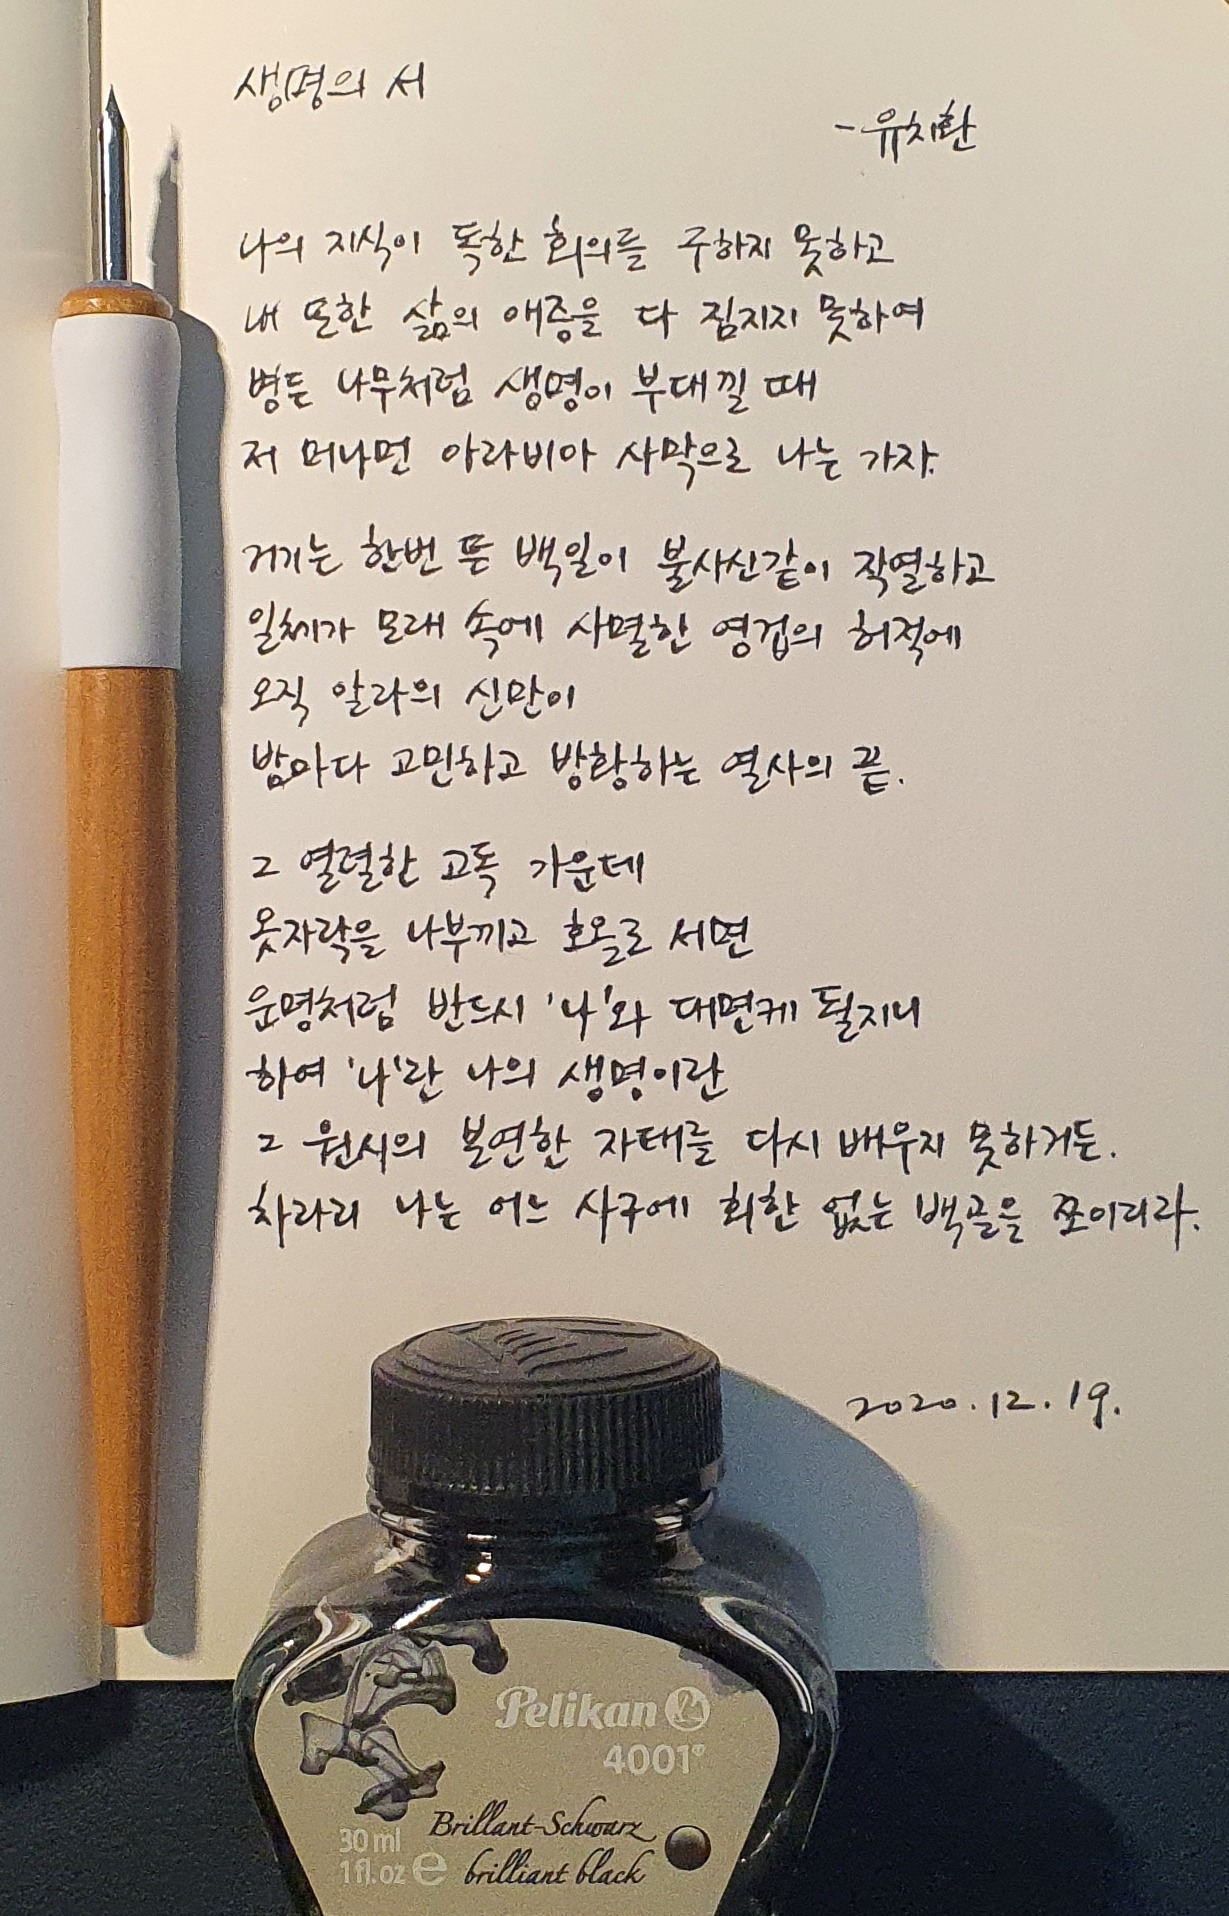 생명의 서
- 유치환
나의 지식이 독한 회의를 구하지 못하고
내 또한 삶의 애증을 다 짐지지 못하여
병든 나무처럼 생명이 부대낄 때
저 머나먼 아라비아 사막으로 나는 가자.
거기는 한번 뜬 백일이 불사신같이 작열하고
일체가 모래 속에 사멸한 영겁의 허적에
오직 알라의 신만이
밤마다 고민하고 방황하는 열사의 끝.
그 열렬한 고독 가운데
옷자락을 나부끼고 호올로 서면
운명처럼 반드시 '나'와 대면케 될지니
하여 '나'란 나의 생명이란
그 원시의 본연한 자태를 다시 배우지 못하거든.
차라리 나는 어느 사구에 회한 없는 백골을 쪼이리라.
2020.12.19.
Pelikan
4001®
Brillant-Schwarz
30 ml
1 fl.oz ℮
brilliant black